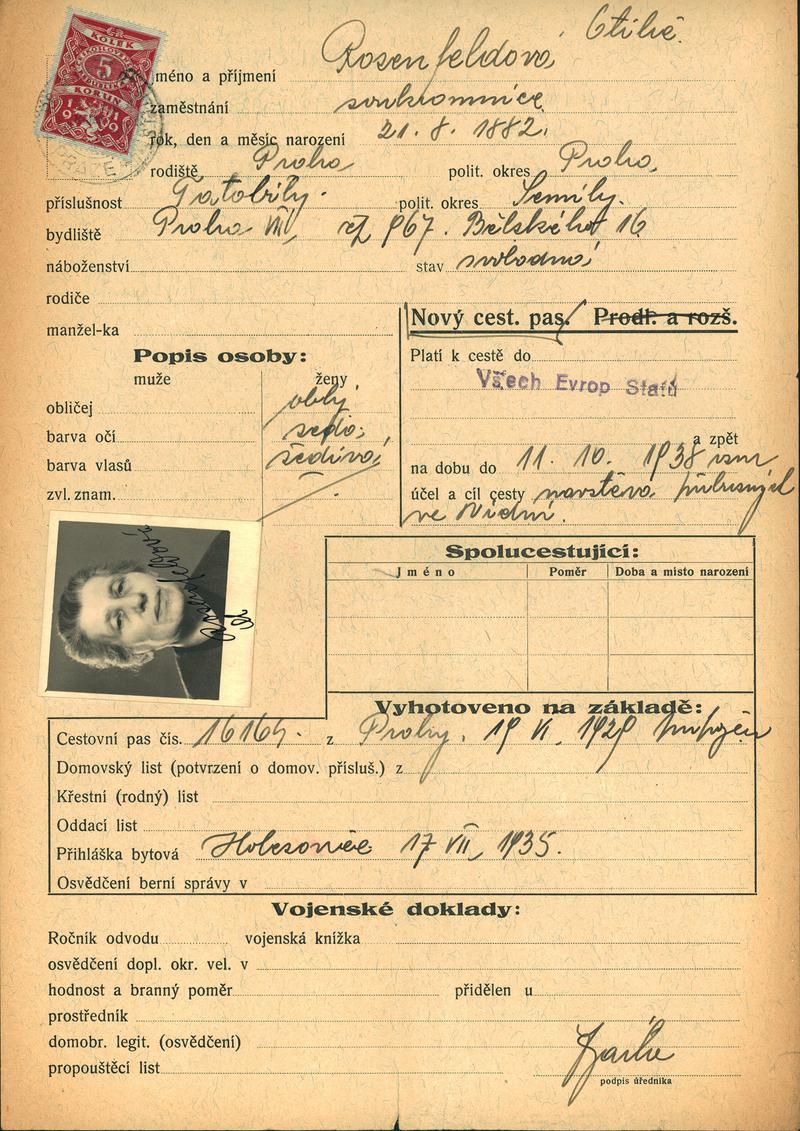 ČR
KOLEK
ČESKOSLOVENSKÁ
REPUBLIKA
5
KORUN
1919
PRAZE
jméno a příjmení Rosenfeldová Otilie
zaměstnání soukromnice
rok, den a měsíc narození 21. 8. 1882.
rodiště Praha polit. okres Praha,
příslušnost Tatobity. polit. okres Semily.
bydliště Praha VII, 967. Bělského tř 16
náboženství stav svobodná
rodiče
manžel-ka
Nový cest. pas. Prodl. a rozš.
Platí k cestě do
Všech Evrop Států
a zpět
na dobu do 11. 10. 1938
účel a cíl cesty návštěva příbuzných
ve Vídni.
Popis osoby:
muže ženy
obličej oblý
barva očí šedá
barva vlasů šedivá
zvl. znam.
Rosenfeldová
Spolucestující:
Jméno Poměr Doba a místo narození
Vyhotoveno na základě:
Cestovní pas čís. 16164. z Prahy, 19 VI. 1929
Domovský list (potvrzení o domov. přísluš.) z
Křestní (rodný) list
Oddací list
Přihláška bytová Holešovice 17 VII, 1935.
Osvědčení berní správy v
Vojenské doklady:
Ročník odvodu vojenská knížka
osvědčení dopl. okr. vel. v
hodnost a branný poměr přidělen u
prostředník
domobr. legit. (osvědčení)
propouštěcí list
podpis úředníka